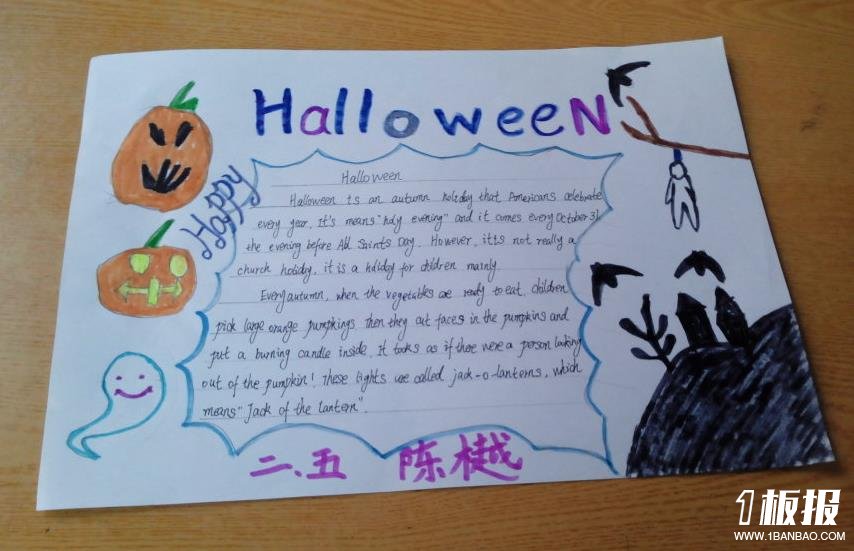 HalloweeN
Happy
Halloween
Halloween is an autumn holiday that Americans celebrate
every year. It's means "holy evening" and it comes every October 31,
the evening before All Saints Day. However, it's not really a
church holiday, it is a holiday for children mainly
Every autumn, when the vegetables are ready to eat, children
pick large orange pumpkings. Then they cut faces in the pumpkins and
put a burning candle inside. It looks as if there were a person looking
out of the pumpkin! These lights are called jack-o-lanterns, which
means "Jack of the lantern".
二、五 陈樾
1板报
WWW.1BANBAO.COM